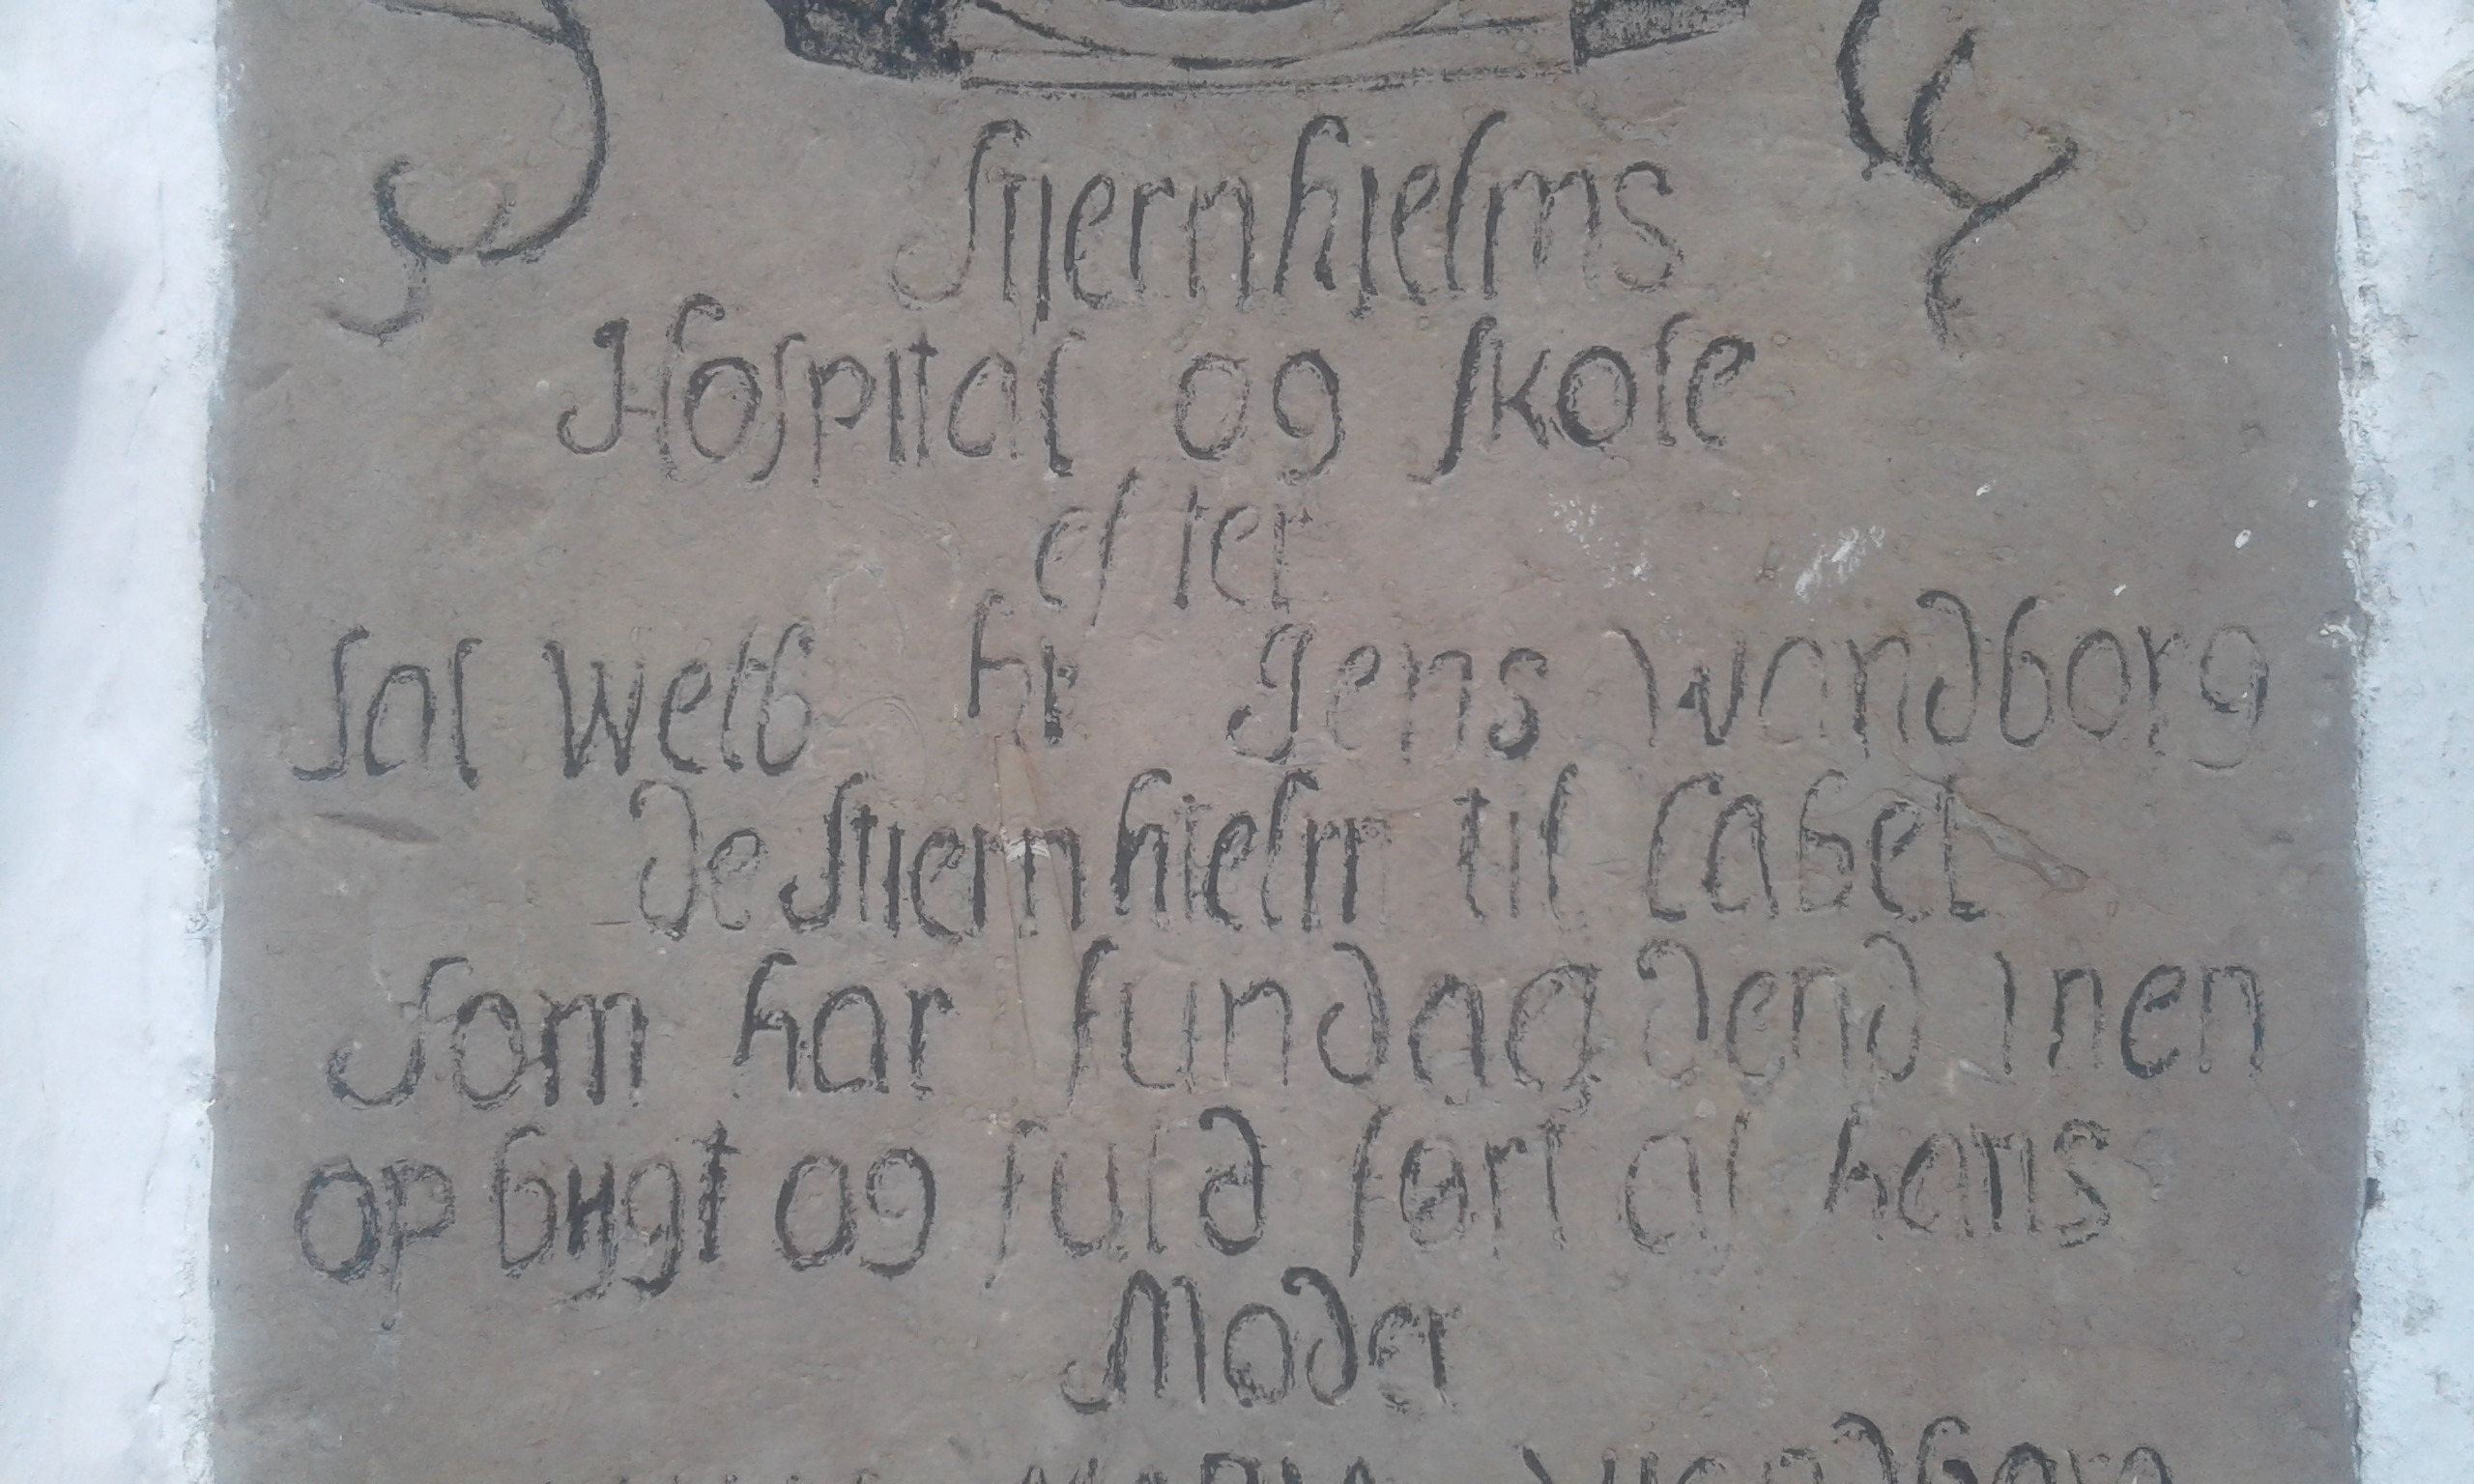 Stiernhielms
Hospital og Skole
efter
Sal Welb hr Jens Wandborg
de Stiernhielm til Cabel
Som har fundag dend inen
op bygt og fuld ført af hans
Moder
MARIA Wandborg